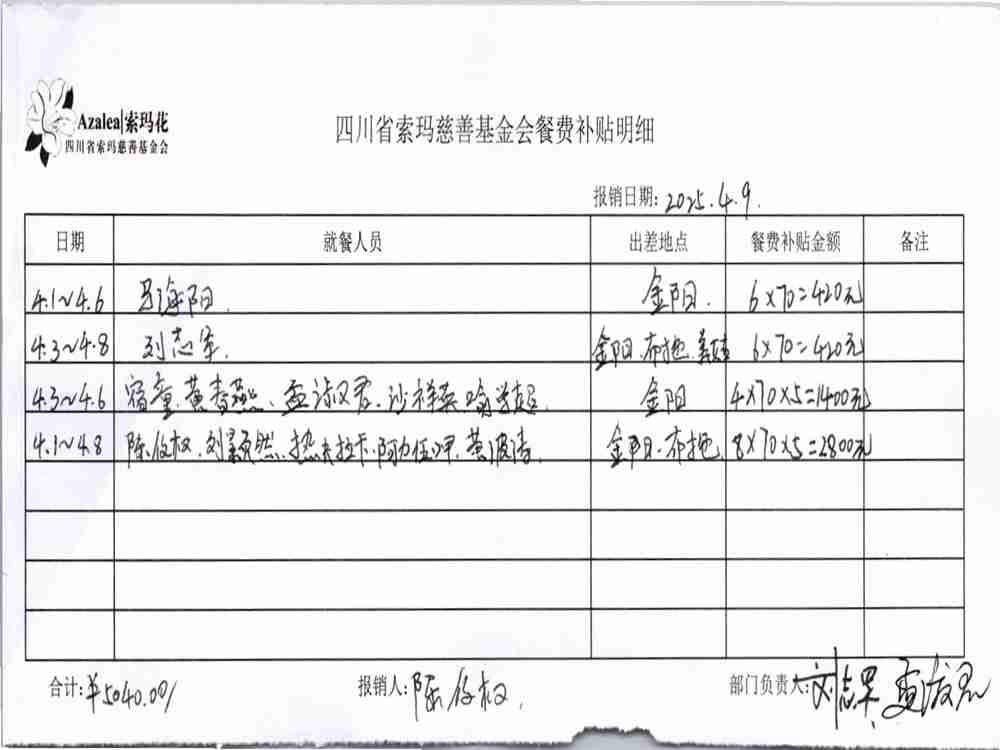 Azalea|索玛花
四川省索玛慈善基金会
四川省索玛慈善基金会餐费补贴明细
报销日期: 2025.4.9.
日期 就餐人员 出差地点 餐费补贴金额 备注
4.1~4.6 马海阳. 金阳. 6×70=420元
4.3~4.8 刘志军. 金阳.布拖. 6×70=420元
4.3~4.6 宿童.黄春燕.孟淑君.沙祥英.喻学超. 金阳 4×70×5=1400元
4.1~4.8 陈俊权.刘颖然.热夫拉卡.阿力伍呷.黄波清. 金阳.布拖 8×70×5=2800元
合计:¥5040.00/ 报销人:陈俊权. 部门负责人:刘志军.孟淑君